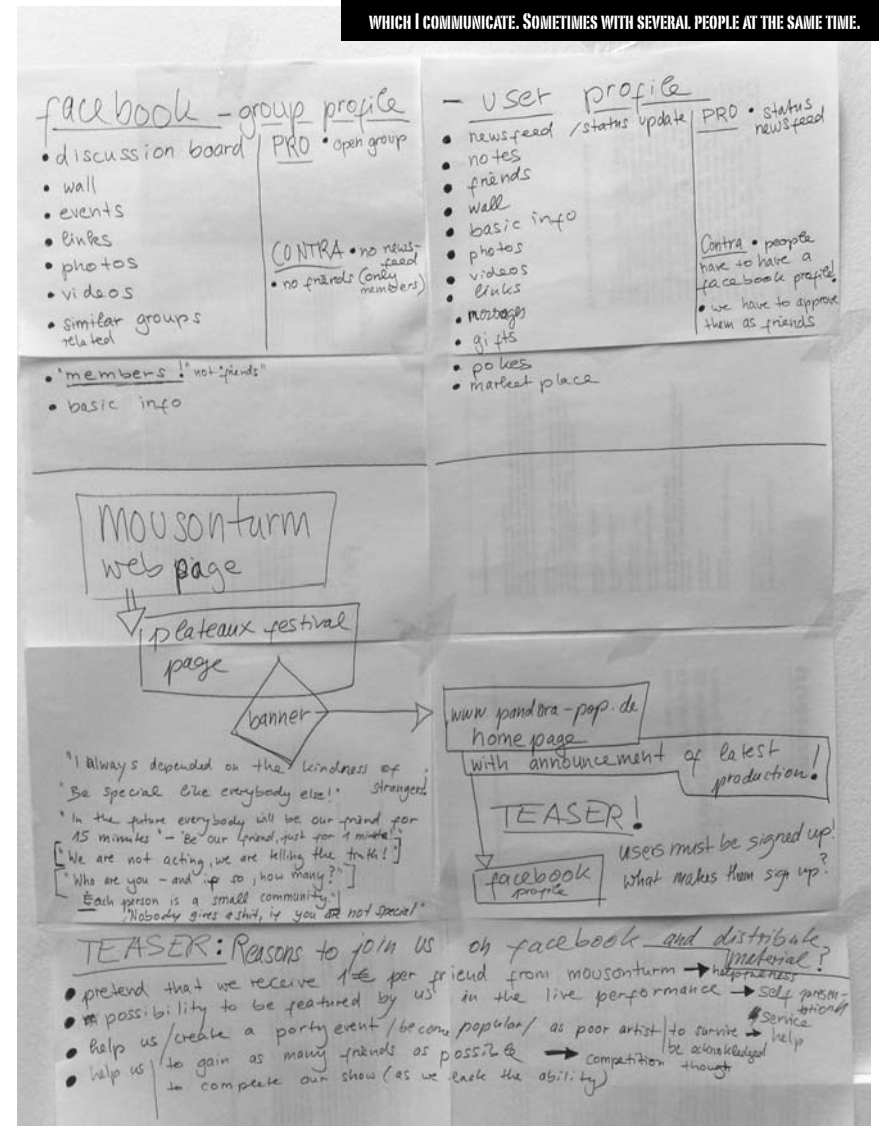 WHICH I COMMUNICATE. SOMETIMES WITH SEVERAL PEOPLE AT THE SAME TIME.
facebook - group profile
• discussion board
• wall
• events
• links
• photos
• videos
• similar groups
related
PRO • open group
CONTRA • no news-
feed
• no friends (only
members)
• "members!" not "friends"
• basic info
- user profile
• newsfeed / status update
• notes
• friends
• wall
• basic info
• photos
• videos
• links
• messages
• gifts
• pokes
• market place
PRO • status
newsfeed
Contra • people
have to have a
facebook profile!
• we have to approve
them as friends
MOUSONTURM
web page
plateaux festival
page
banner
www.pandora-pop.de
home page
with announcement of latest
production!
TEASER!
facebook
profile
users must be signed up!
what makes them sign up?
"I always depended on the kindness of
strangers!
"Be special like everybody else!"
"In the future everybody will be our friend for
15 minutes" - "Be our friend, just for 1 minute!"
["We are not acting, we are telling the truth!"]
["Who are you - and if so, how many?"]
Each person is a small community."
"Nobody gives a shit, if you are not special"
TEASER: Reasons to join us on facebook and distribute
material?
• pretend that we receive 1€ per friend from mousonturm →
• possibility to be featured by us in the live performance → self presen-
tation
service
• help us / create a party event / become popular / as poor artist | to survive → help
be acknowledged
• help us | to gain as many friends as possible → competition though
to complete our show (as we lack the ability)